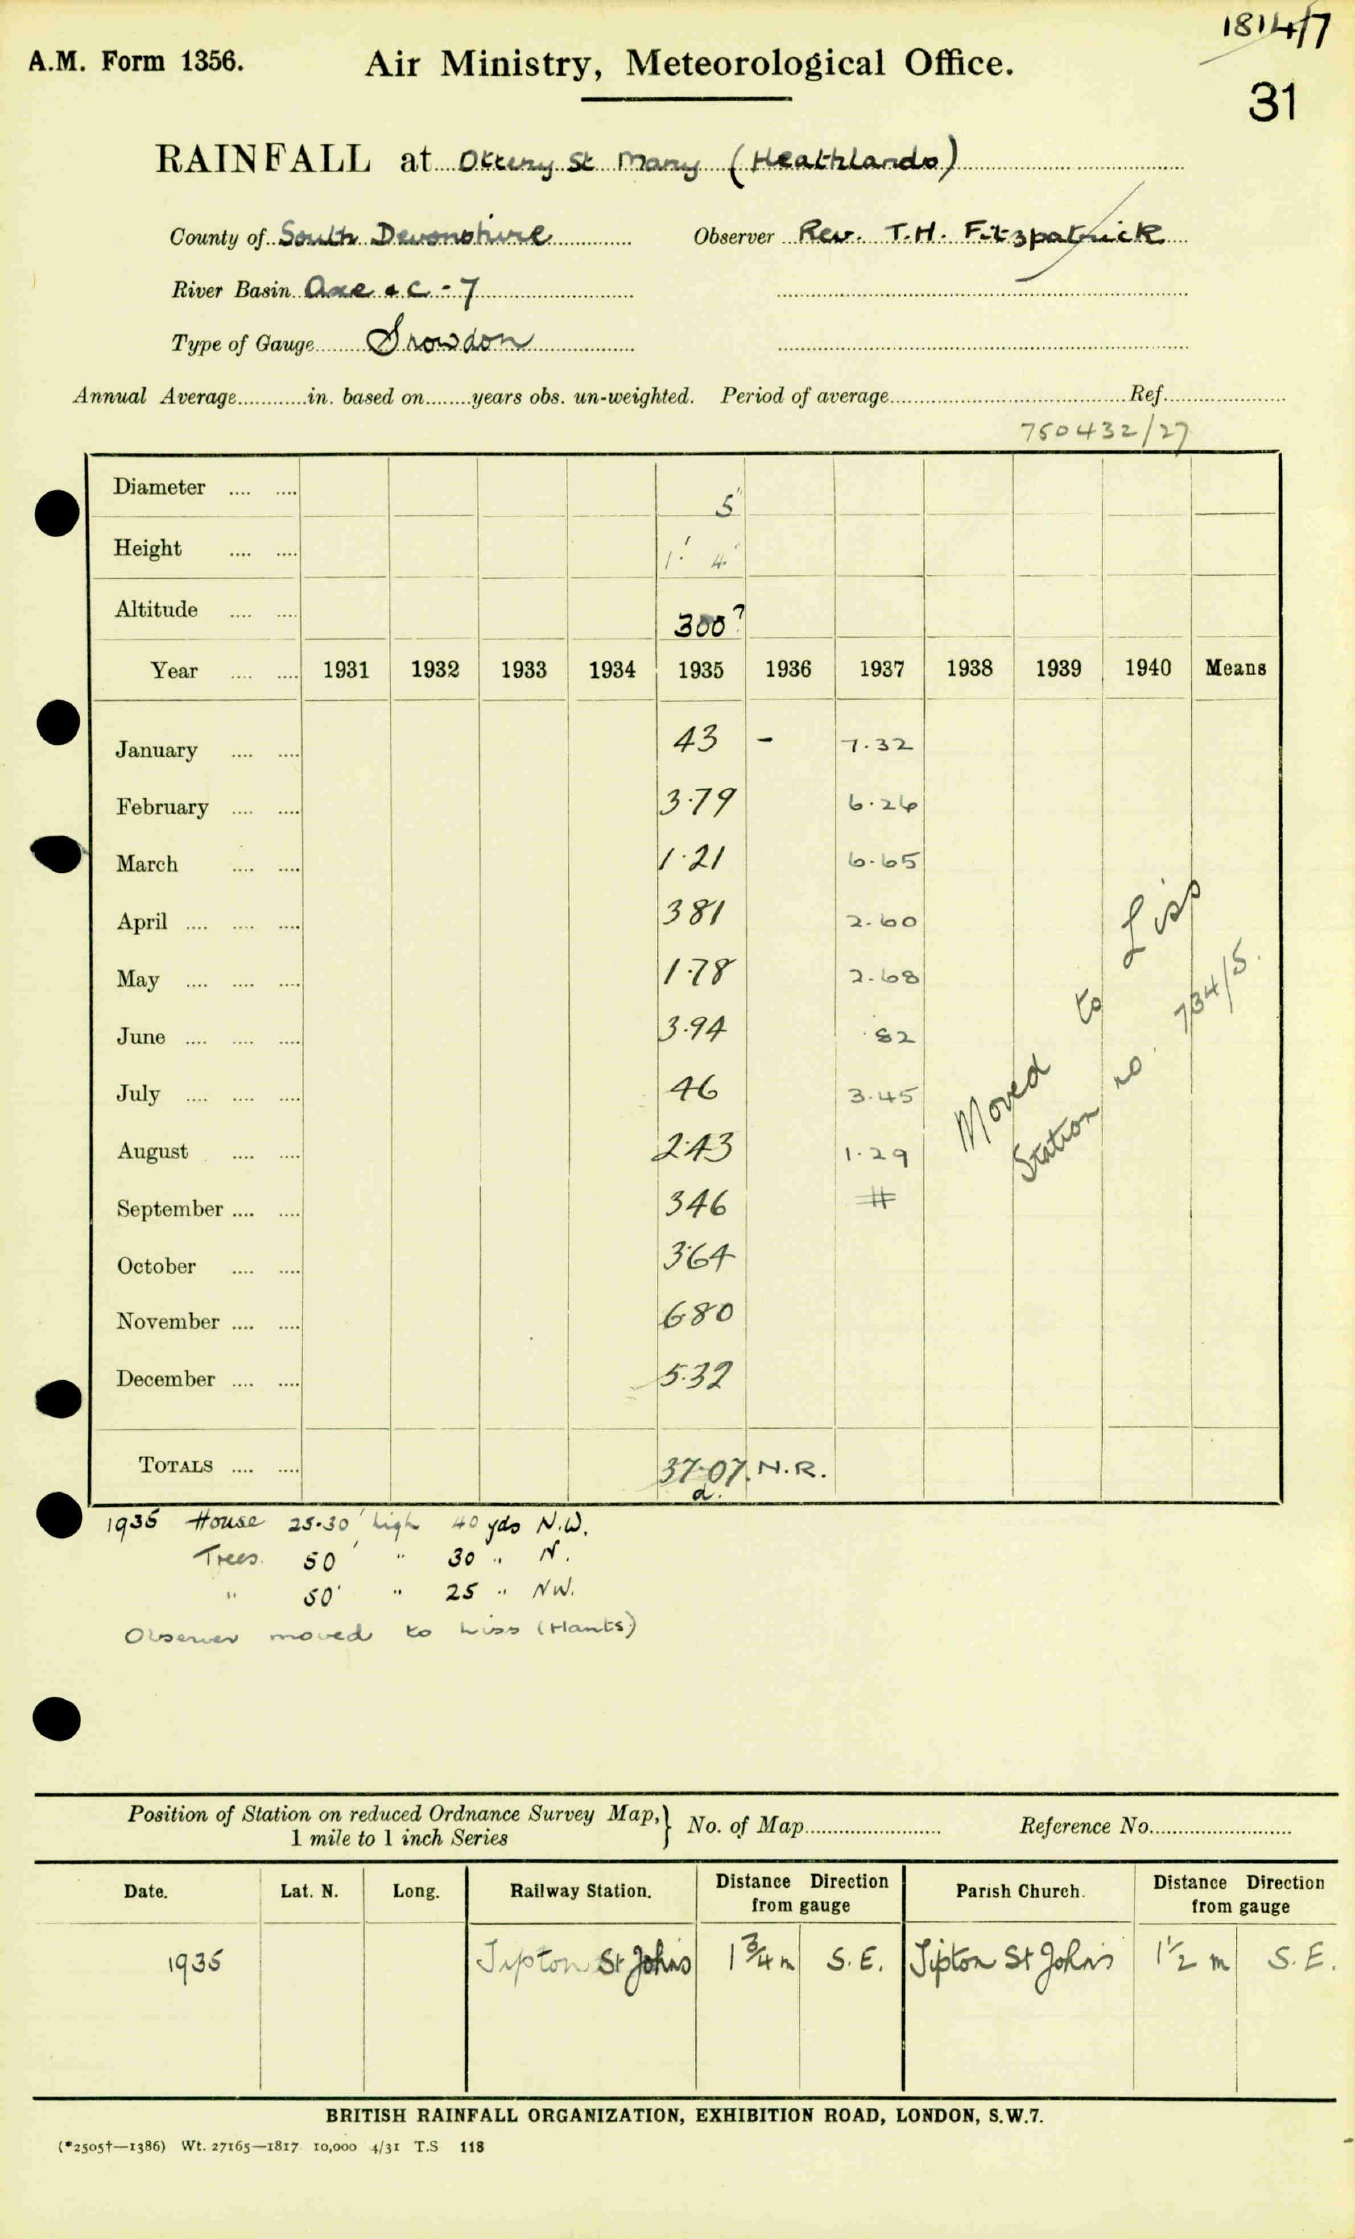 1814/7
A.M. Form 1356. Air Ministry, Meteorological Office.
31
RAINFALL at Ottery St Mary (Heathlands)
County of South Devonshire Observer Rev. T.H. Fitzpatrick
River Basin Axe &c - 7
Type of Gauge Snowdon
Annual Average............in. based on........years obs. un-weighted. Period of average........ Ref........
750432/27
Diameter .... .... 5"
Height .... .... 1' 4"
Altitude .... .... 300?
Year .... .... 1931 1932 1933 1934 1935 1936 1937 1938 1939 1940 Means
January .... .... 43 - 7.32
February .... .... 3.79 6.26
March .... .... 1.21 6.65
April .... .... .... 381 2.60
May .... .... .... 1.78 2.68
June .... .... .... 3.94 .82
July .... .... .... 46 3.45
August .... .... 2.43 1.29
September .... .... 346 #
October .... .... 3.64
November .... .... 680
December .... .... 5.32
Moved to Liss
Station no. 734/5.
TOTALS .... .... 37.07. N.R.
a.
1935 House 25-30' high 40 yds N.W.
Trees 50' " 30 " N.
" 50' " 25 " NW.
Observer moved to Liss (Hants)
Position of Station on reduced Ordnance Survey Map, } No. of Map........ Reference No........
1 mile to 1 inch Series
Date. Lat. N. Long. Railway Station. Distance Direction from gauge Parish Church. Distance Direction from gauge
1935 Tipton St Johns 1 3/4 m S.E. Tipton St Johns 1 1/2 m S.E.
BRITISH RAINFALL ORGANIZATION, EXHIBITION ROAD, LONDON, S.W.7.
(*2505†—1386) Wt. 27165—1817 10,000 4/31 T.S 118